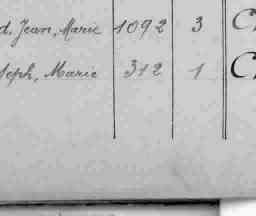 d, Jean, Marie 1092 3 C
seph, Marie 312 1 C